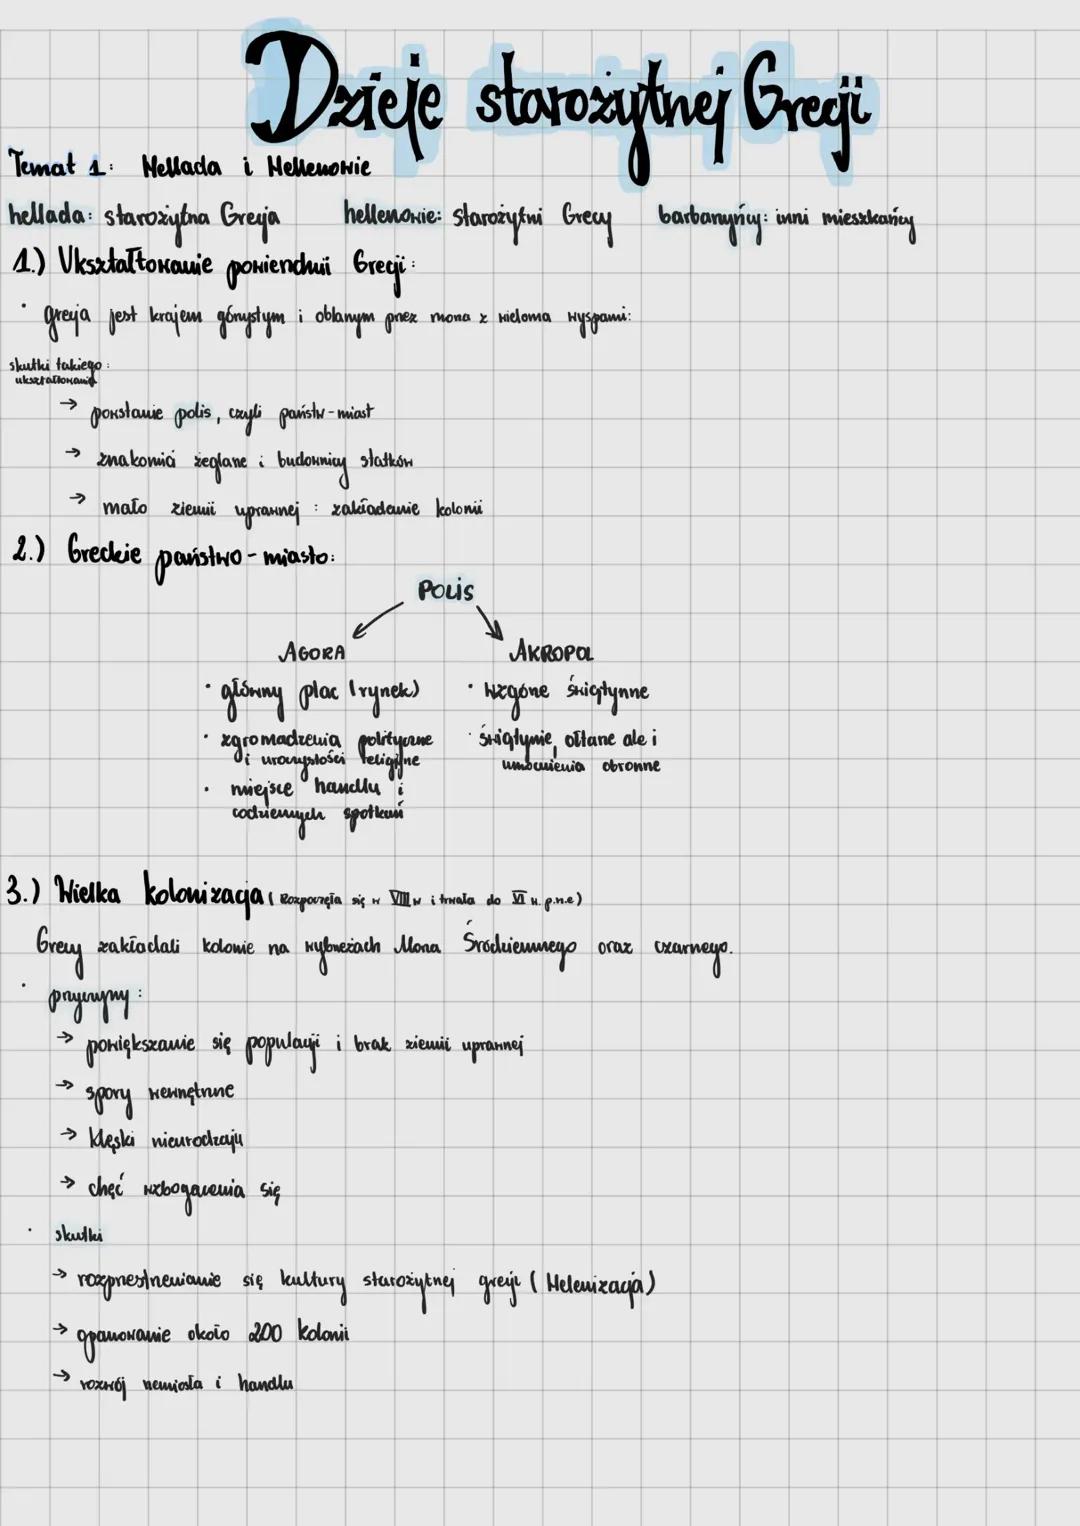 Dzieje starożytnej Grecji
Temat 1: Hellada i Hellenowie
hellada: starożytna Grecja hellenowie: starożytni Grecy barbarzyńcy: inni mieszkańcy
1.) Ukształtowanie powierzchnii Grecji:
· grecja jest krajem górzystym i oblanym przez morza z wieloma wyspami:
skutki takiego:
ukształtowania
→ powstanie polis, czyli państw-miast
→ znakomici żeglarze i budowniczy statków
→ mało ziemii uprawnej : zakładanie kolonii
2.) Greckie państwo-miasto:
POLIS
AGORA
· główny plac (rynek)
· zgromadzenia polityczne
i uroczystości religijne
· miejsce handlu i
codziennych spotkań
AKROPOL
· wzgórze świątynne
· świątynie, ołtarze ale i
umocnienia obronne
3.) Wielka kolonizacja (Rozpoczęła się w VIII w i trwała do VI w. p.n.e)
Grecy zakładali kolonie na wybrzeżach Morza Śródziemnego oraz czarnego.
· przyczyny:
→ powiększanie się populacji i brak ziemii uprawnej
→ spory wewnętrzne
→ klęski nieurodzaju
→ chęć wzbogacenia się
· skutki
→ rozprzestrzenianie się kultury starożytnej grecji (Helenizacja)
→ opanowanie około 200 kolonii
→ rozwój rzemiosła i handlu